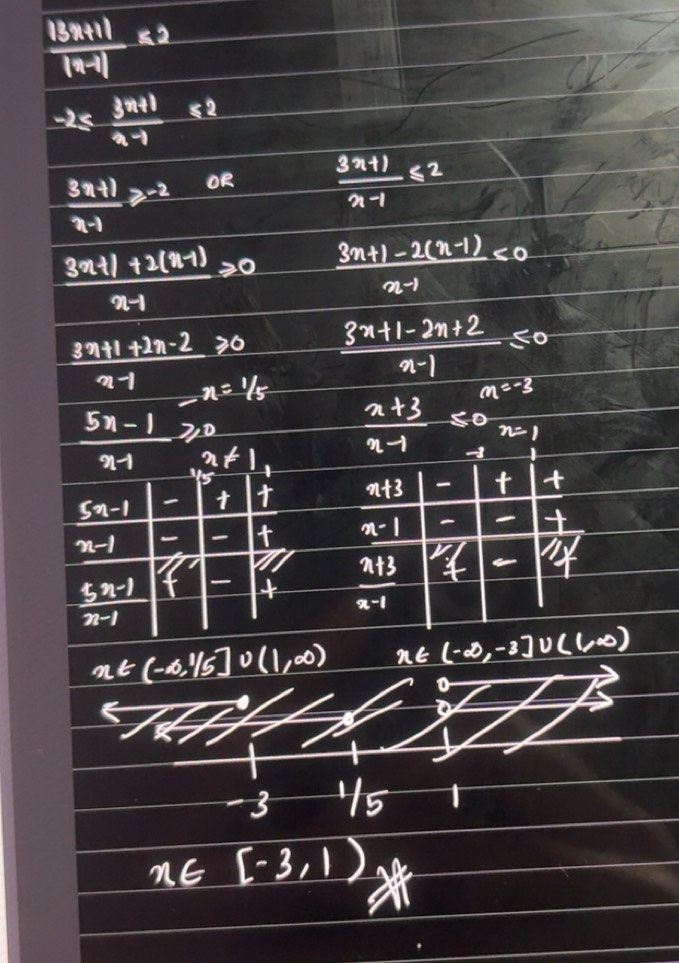 |3x+1| / |x-1| ≤ 2
-2 ≤ (3x+1)/(x-1) ≤ 2
(3x+1)/(x-1) ≥ -2 OR (3x+1)/(x-1) ≤ 2
(3x+1+2(x-1))/(x-1) ≥ 0 (3x+1-2(x-1))/(x-1) ≤ 0
(3x+1+2x-2)/(x-1) ≥ 0 (3x+1-2x+2)/(x-1) ≤ 0
x = 1/5 x = -3
(5x-1)/(x-1) ≥ 0 (x+3)/(x-1) ≤ 0
x ≠ 1 x = 1
1/5 1 -3 1
5x-1 - + + x+3 - + +
x-1 - - + x-1 - - +
(5x-1)/(x-1) + - + (x+3)/(x-1) + - +
x ∈ (-∞, 1/5] ∪ (1, ∞) x ∈ (-∞, -3] ∪ (1, ∞)
-3 1/5 1
x ∈ [-3, 1)